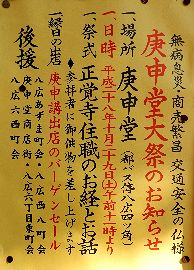 無病息災・商売繁昌 交通安全の仏様
庚申堂大祭のお知らせ
一、場所 庚申堂
一、日時 平成二十八年十月二十九日(土)午前十一時より
一、祭式 正覚寺住職のお経とお話
◆参拝者に御供物を差し上げます
一、縁日の出店
庚申講出店のバーゲンセール
後援
八広あづま町会・八広西町会
庚申堂商店街・八広六丁目東町会
八広六西町会